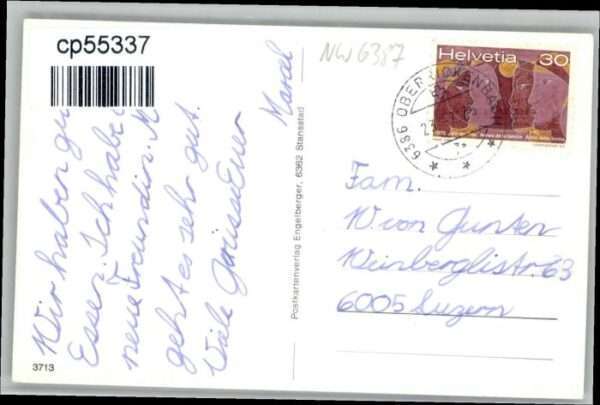 cp55337
NW 6387
Helvetia 30
6386 OBER
Wir haben gu
Essen. Ich habe
neue Freundin. M
geht es sehr gut.
Viele Grüsse Euer
Marcel
Postkartenverlag Engelberger, 6362 Stansstad
Fam.
W. von Gunten
Weinberglistr. 63
6005 Luzern
3713